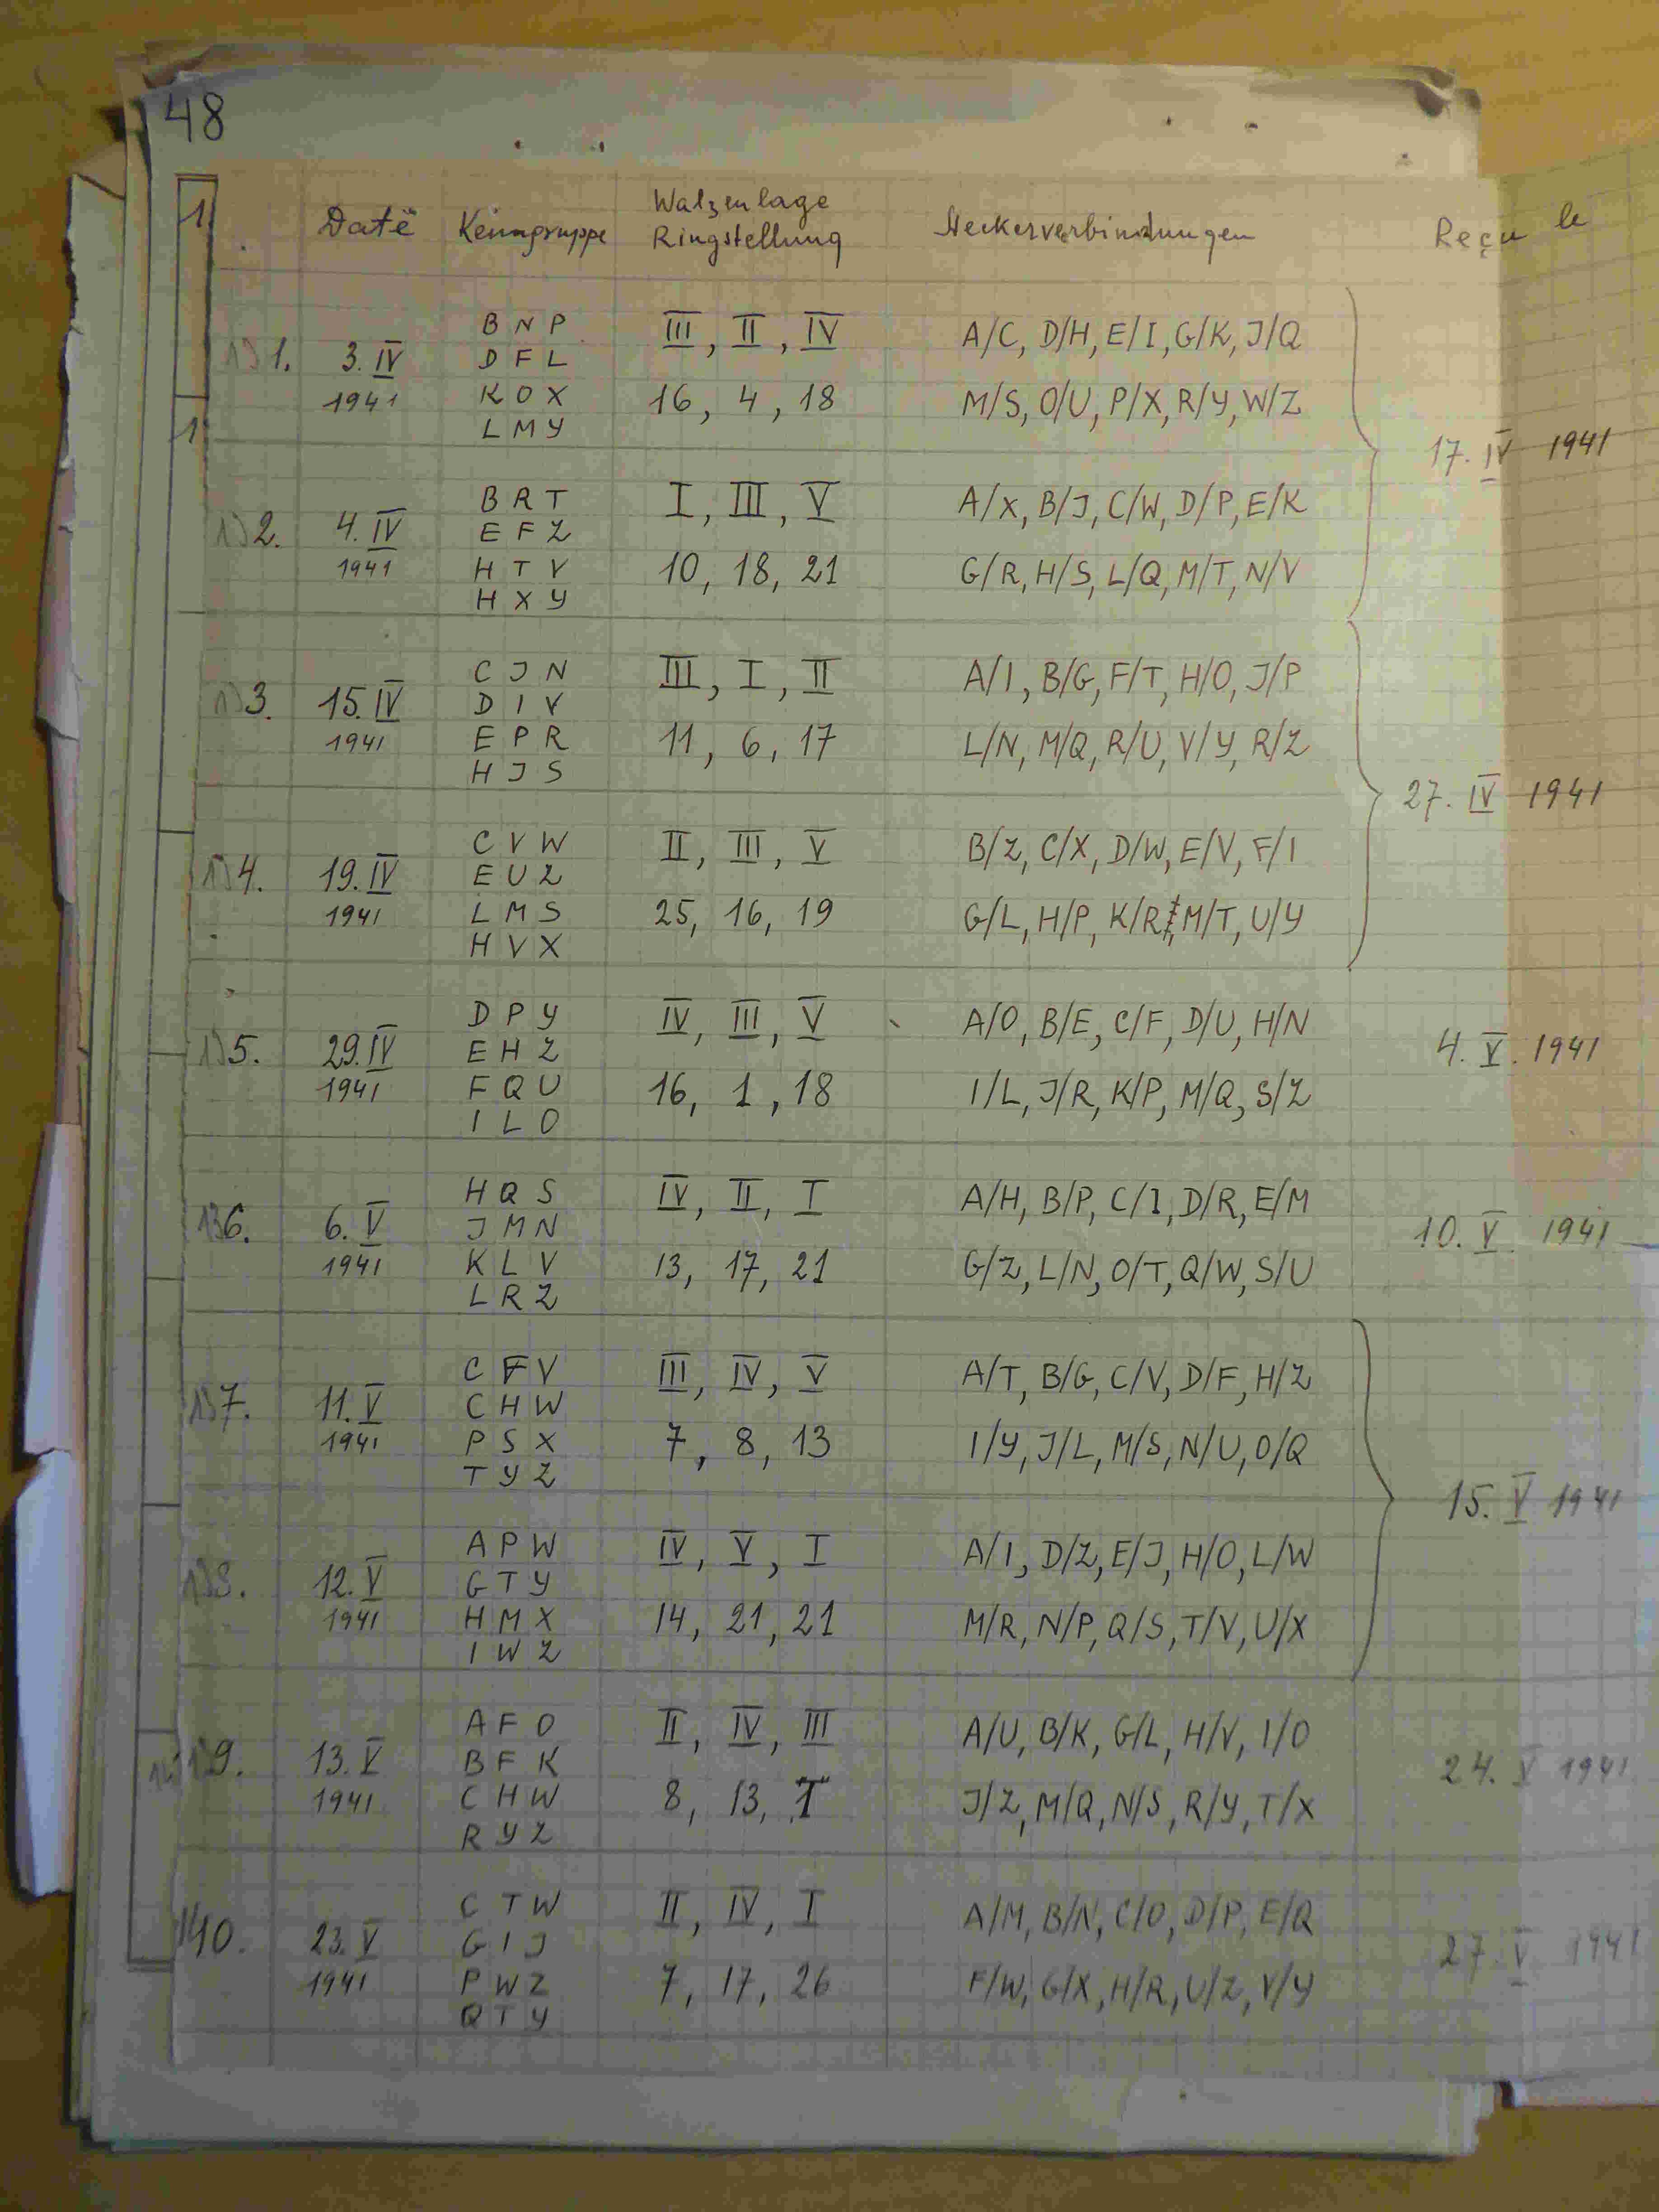 48
1
Datë Kenngruppe Walzenlage
Ringstellung Steckerverbindungen Reçu le
1
1. 3. IV
1941 B N P
D F L
K O X
L M Y III, II, IV
16, 4, 18 A/C, D/H, E/I, G/K, J/Q
M/S, O/U, P/X, R/Y, W/Z
17. IV 1941
2. 4. IV
1941 B R T
E F Z
H T V
H X Y I, III, V
10, 18, 21 A/X, B/J, C/W, D/P, E/K
G/R, H/S, L/Q, M/T, N/V
3. 15. IV
1941 C J N
D I V
E P R
H J S III, I, II
11, 6, 17 A/I, B/G, F/T, H/O, J/P
L/N, M/Q, R/U, V/Y, R/Z
27. IV 1941
4. 19. IV
1941 C V W
E U Z
L M S
H V X II, III, V
25, 16, 19 B/Z, C/X, D/W, E/V, F/I
G/L, H/P, K/R, M/T, U/Y
5. 29. IV
1941 D P Y
E H Z
F Q U
I L O IV, III, V
16, 1, 18 A/O, B/E, C/F, D/U, H/N
I/L, J/R, K/P, M/Q, S/Z
4. V. 1941
6. 6. V
1941 H Q S
J M N
K L V
L R Z IV, II, I
13, 17, 21 A/H, B/P, C/I, D/R, E/M
G/Z, L/N, O/T, Q/W, S/U
10. V. 1941
7. 11. V
1941 C F V
C H W
P S X
T Y Z III, IV, V
7, 8, 13 A/T, B/G, C/V, D/F, H/Z
I/Y, J/L, M/S, N/U, O/Q
15. V 1941
8. 12. V
1941 A P W
G T Y
H M X
I W Z IV, V, I
14, 21, 21 A/I, D/Z, E/J, H/O, L/W
M/R, N/P, Q/S, T/V, U/X
9. 13. V
1941 A F O
B F K
C H W
R Y Z II, IV, III
8, 13, 1 A/U, B/K, G/L, H/V, I/O
J/Z, M/Q, N/S, R/Y, T/X
24. V 1941
140. 23. V
1941 C T W
G I J
P W Z
Q T Y II, IV, I
7, 17, 26 A/M, B/N, C/O, D/P, E/Q
F/W, G/X, H/R, U/Z, V/Y
27. V 1941